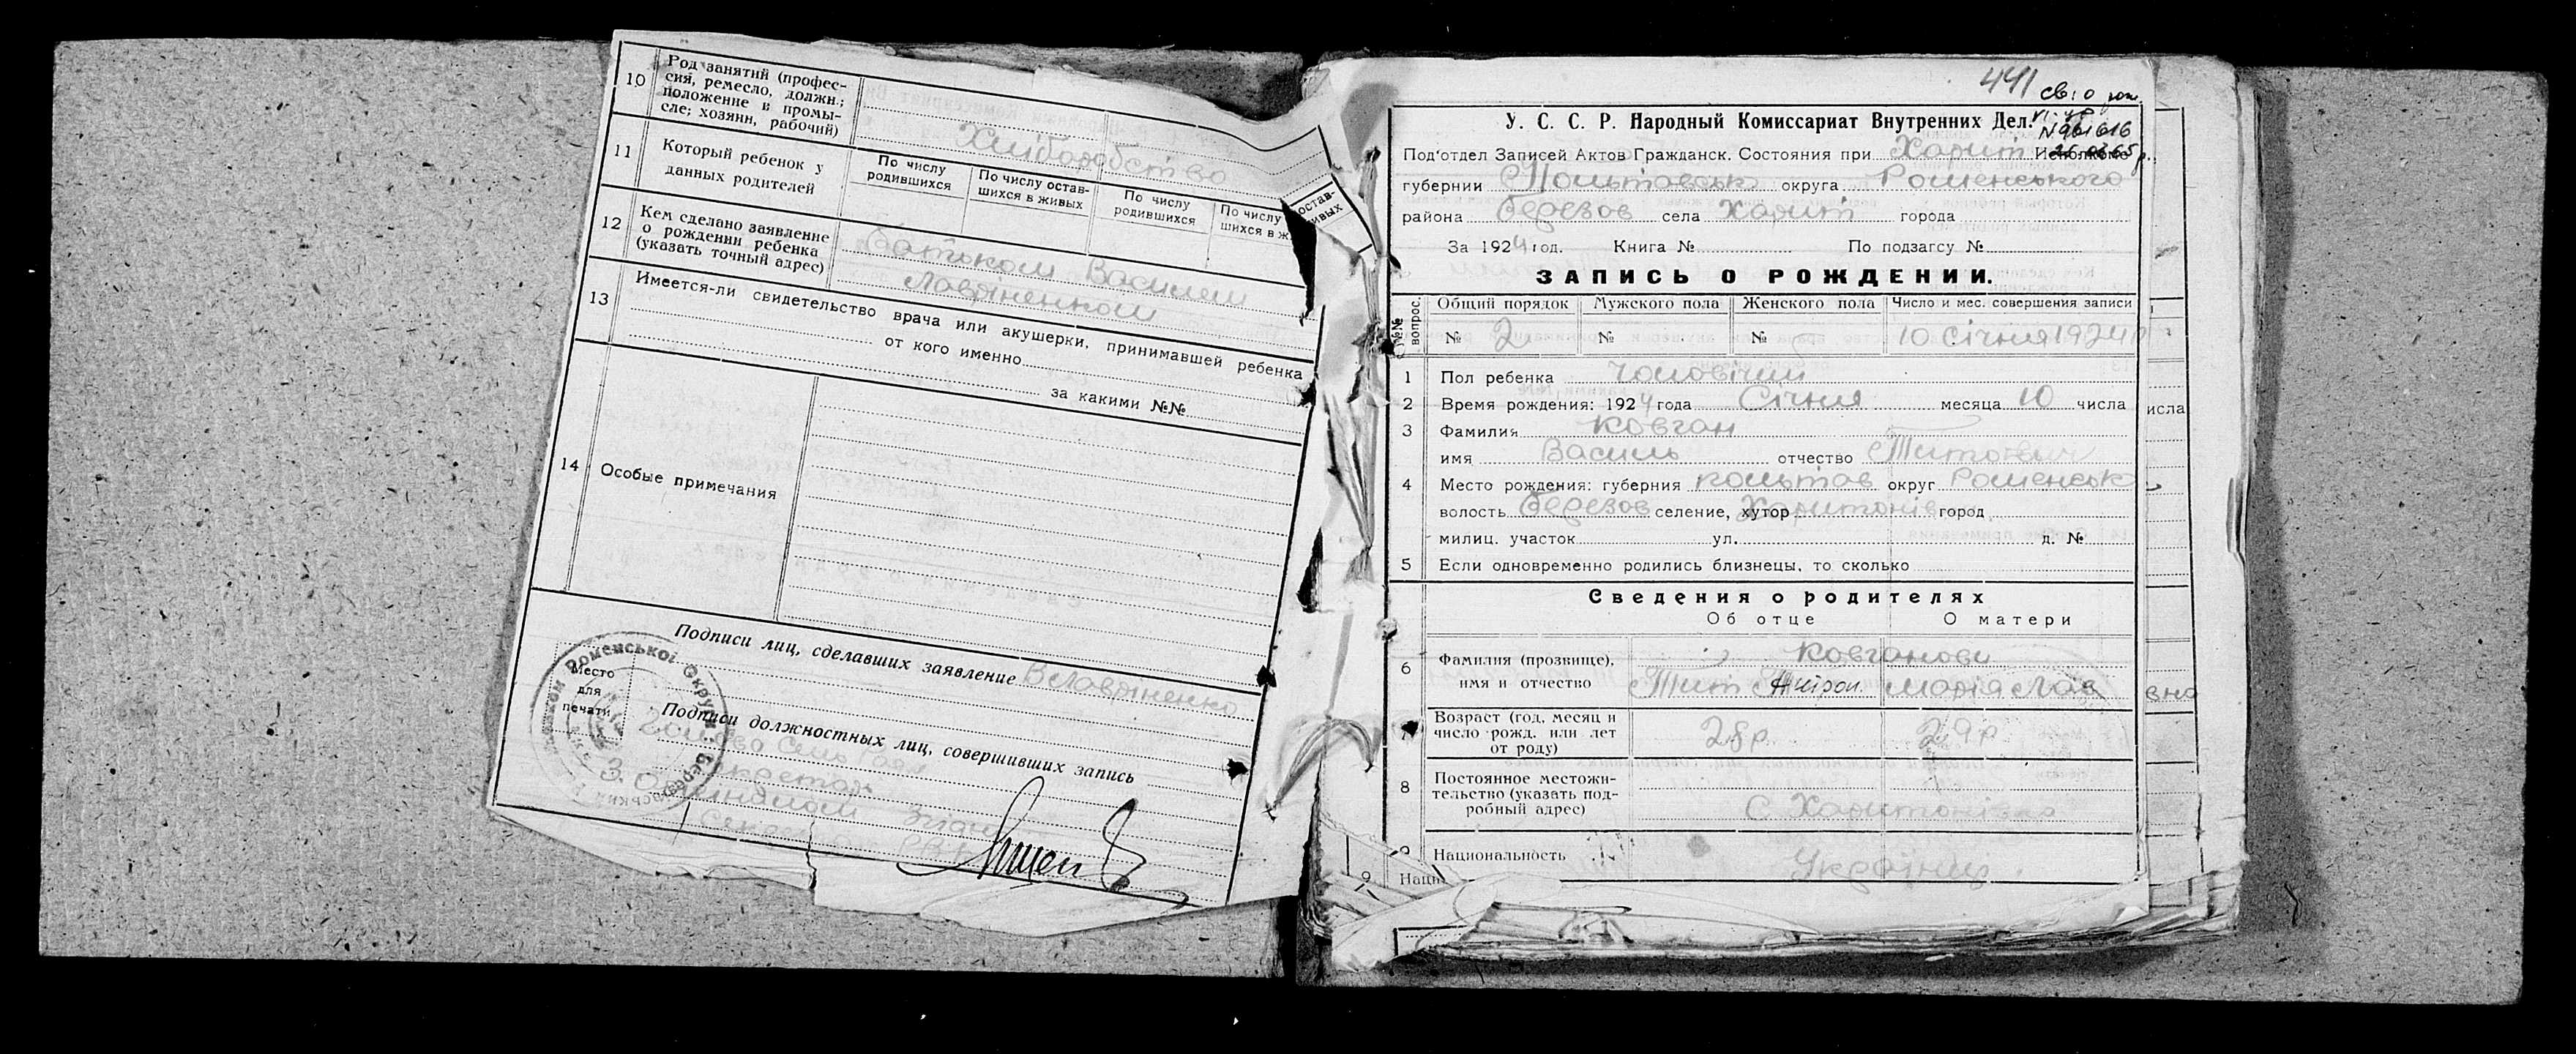 10 Род занятий (профес-
сия, ремесло, должн.;
положение в промы-
сле; хозяин, рабочий)
Хліборобство
11 Который ребенок у
данных родителей
По числу
родившихся
По числу остав-
шихся в живых
По числу
родившихся
По числу
шихся в ж
остав-
ивых
12 Кем сделано заявление
о рождении ребенка
(указать точный адрес)
батьком Василем
Лавріненком
13 Имеется-ли свидетельство врача или акушерки, принимавшей ребенка
от кого именно
за какими №№
14 Особые примечания
Подписи лиц, сделавших заявление В Лавріненко
Место
для
печати
Роменської Округи
Подписи должностных лиц, совершивших запись
Голова Сель
Секретарь
441 св. о
N 961616
У. С. С. Р. Народный Комиссариат Внутренних Дел.
Под'отдел Записей Актов Гражданск. Состояния при Харит Исполкоме
губернии Полтавськ округа Роменського
района Березов села Харит города
За 1924 год. Книга № По подзагсу №
ЗАПИСЬ О РОЖДЕНИИ.
№№ вопрос. Общий порядок Мужского пола Женского пола Число и мес. совершения записи
№ 2 № № 10 Січня 1924 р
1 Пол ребенка Чоловічий
2 Время рождения: 1924 года Січня месяца 10 числа
исла
3 Фамилия Ковган
имя Василь отчество Титович
4 Место рождения: губерния Полтав округ Роменськ
волость Березов селение, хутор Харитонів город
милиц. участок ул. д. №
5 Если одновременно родились близнецы, то сколько
Сведения о родителях
Об отце О матери
6 Фамилия (прозвище),
имя и отчество
Ковганови
Тит Марія
вна
7 Возраст (год, месяц и
число рожд. или лет
от роду)
28р. 29р
8 Постоянное местожи-
тельство (указать под-
робный адрес)
С. Харитонівка
9 Национальность Українці
9 Наци